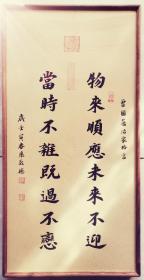 曾國藩治家格言
物來順應未來不迎
當時不雜既過不戀
歲壬寅春